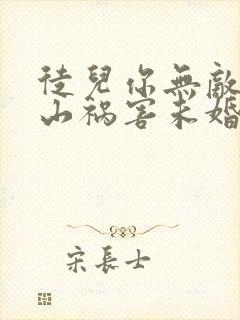 徒兒你無敵
山禍害未婚
宋長士